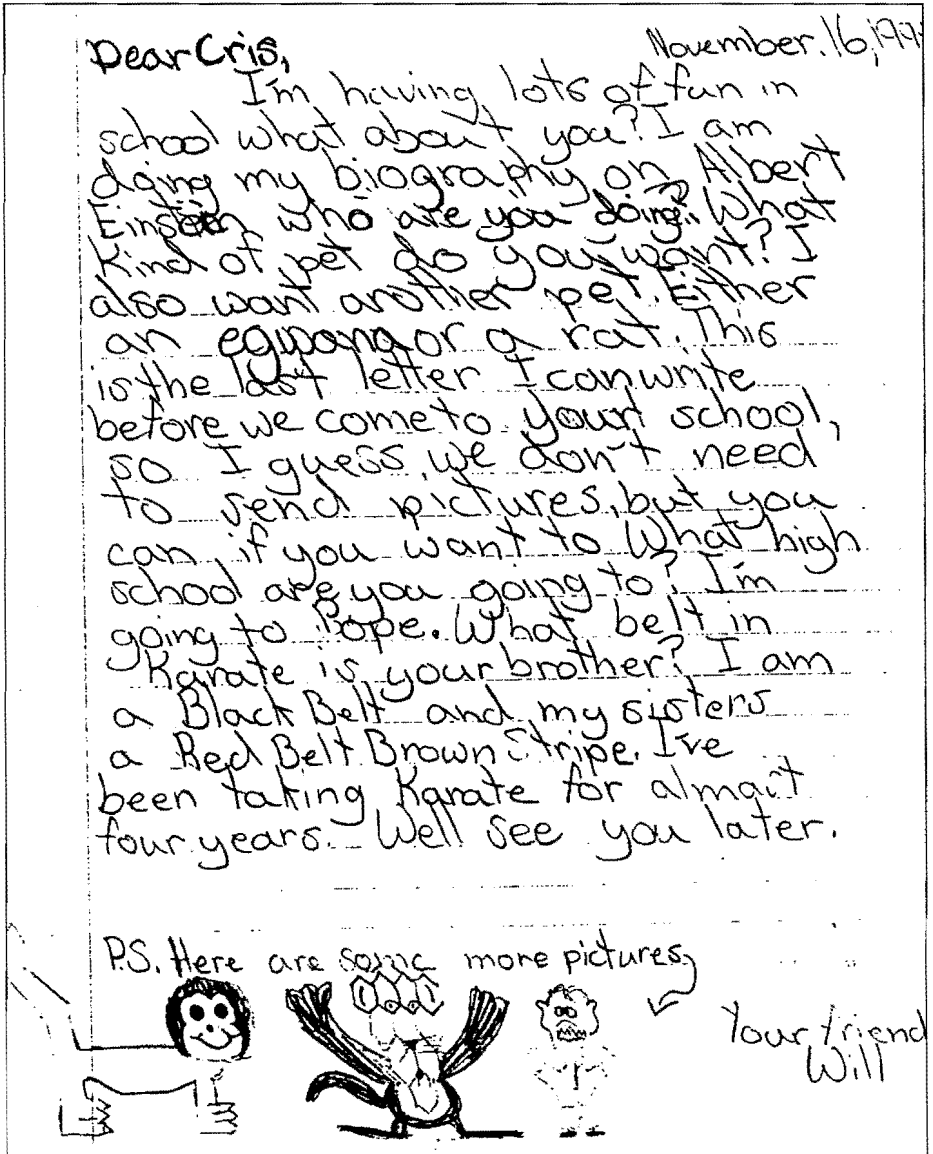 November.16,199
Dear Cris,
I'm having lots of fun in
school what about you? I am
doing my biography on Albert
Einstein who are you doing? What
Kind of pet do you want? I
also want another pet. Either
an egwana or a rat. This
is the last letter I can write
before we come to your school,
so I guess we don't need
to send pictures, but you
can if you want to What high
school are you going to? I'm
going to Pope. What belt in
Karate is your brother? I am
a Black Belt and my sisters
a Red Belt Brown Stripe. I've
been taking Karate for almost
four years. Well see you later.
P.S. Here are some more pictures
Your friend
Will